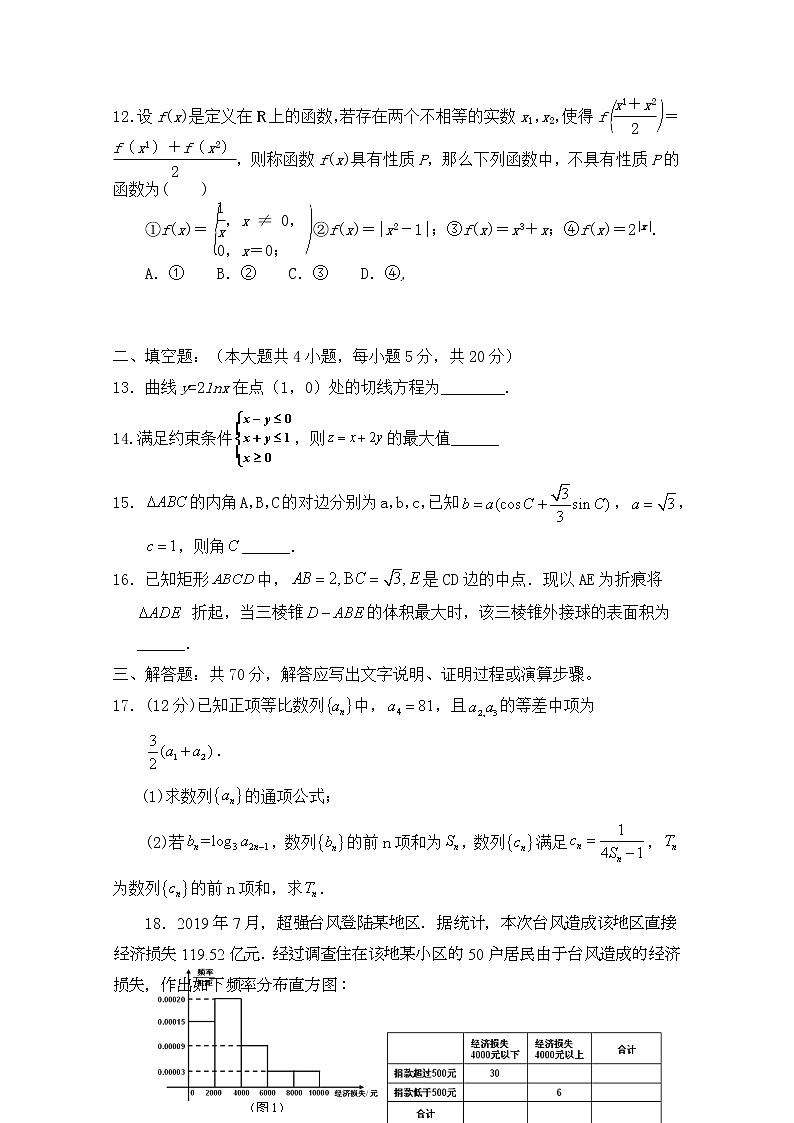 12.设 f(x)是定义在 R 上的函数,若存在两个不相等的实数 x1,x2,使得 f((x1+x2)/2)=
(f(x1)+f(x2))/2,则称函数 f(x)具有性质 P,那么下列函数中,不具有性质 P 的
函数为(　　)
①f(x)={1/x, x ≠ 0, 0, x=0; ②f(x)=|x²-1|;③f(x)=x³+x;④f(x)=2^|x|.
A.①　　B.②　　C.③　　D.④,
二、填空题:(本大题共 4 小题,每小题 5 分,共 20 分)
13.曲线 y=2lnx 在点(1,0)处的切线方程为________.
14.满足约束条件{x-y≤0 x+y≤1 x≥0,则 z=x+2y 的最大值______
15.ΔABC 的内角 A,B,C 的对边分别为 a,b,c,已知 b=a(cos C+(√3/3)sin C),a=√3,
c=1,则角 C ______.
16.已知矩形 ABCD 中,AB=2,BC=√3,E 是 CD 边的中点.现以 AE 为折痕将
ΔADE 折起,当三棱锥 D-ABE 的体积最大时,该三棱锥外接球的表面积为
______.
三、解答题:共 70 分,解答应写出文字说明、证明过程或演算步骤。
17.(12 分)已知正项等比数列{aₙ}中,a₄=81,且 a₂,a₃ 的等差中项为
3/2(a₁+a₂).
(1)求数列{aₙ}的通项公式;
(2)若 bₙ=log₃a₂ₙ₋₁,数列{bₙ}的前 n 项和为 Sₙ,数列{cₙ}满足 cₙ=1/(4Sₙ-1),Tₙ
为数列{cₙ}的前 n 项和,求 Tₙ.
18.2019 年 7 月,超强台风登陆某地区.据统计,本次台风造成该地区直接
经济损失 119.52 亿元.经过调查住在该地某小区的 50 户居民由于台风造成的经济
损失,作出如下频率分布直方图:
频率
组距
0.00020
0.00015
0.00009
0.00003
0 2000 4000 6000 8000 10000 经济损失/元
(图1)
经济损失4000元以下 经济损失4000元以上 合计
捐款超过500元 30
捐款低于500元 6
合计